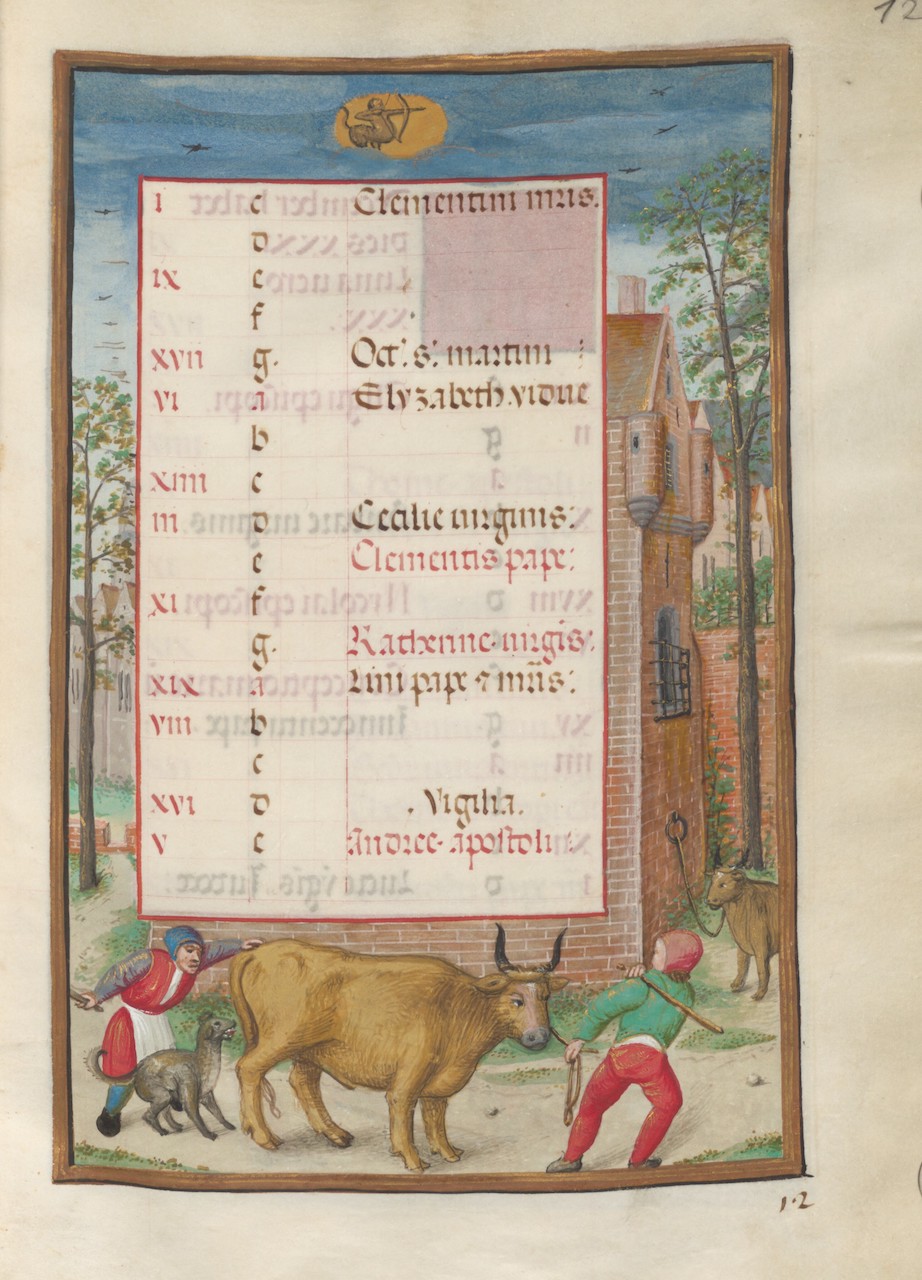 12
I c Clementini mris.
d
IX e
f
XVII g. Oct. s. martini
VI a Elyzabeth vidue
b
XIIII c
III d Cecilie virginis:
e Clementis pape:
XI f
g. Katherine virgis.
XIX a Lini pape ⁊ mris:
VIII b
c
XVI d . Vigilia.
V e Andree apostoli:
1·2